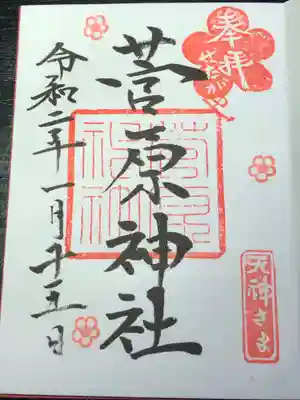 奉拝
せたがや
菅原神社
菅原
神社
令和二年一月十五日
天神さま